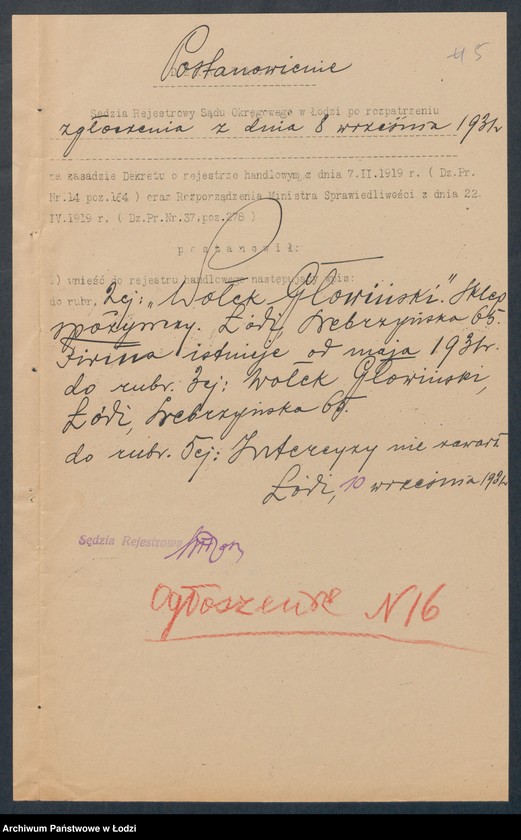 45
Postanowienie
Sędzia Rejestrowy Sądu Okręgowego w Łodzi po rozpatrzeniu
zgłoszenia z dnia 8 września 1931 r
na zasadzie Dekretu o rejestrze handlowym z dnia 7.II.1919 r. ( Dz.Pr.
Nr.14 poz.164 ) oraz Rozporządzenia Ministra Sprawiedliwości z dnia 22
IV.1919 r. ( Dz.Pr.Nr.37,poz.278 )
p o s t a n o w i ł:
1) wnieść do rejestru handlowego następujący wpis:
do rubr. 2ej: "Wolek Głowiński". Sklep
spożywczy. Łódź, Zgierska 65.
Firma istnieje od maja 1931 r.
do rubr. 3ej: Wolek Głowiński,
Łódź, 65.
do rubr. 5ej: Intercyzy nie zawarł
Łódź, 10 września 1931 r
Sędzia Rejestrowy
Ogłoszenie N 16
Archiwum Państwowe w Łodzi